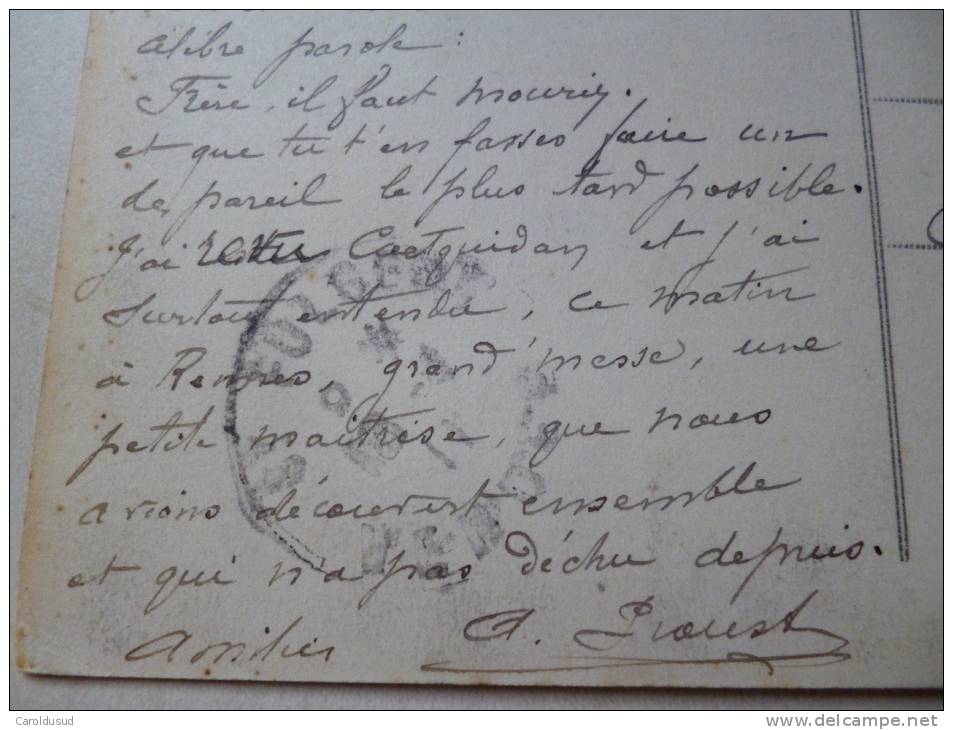 célèbre parole :
Frère, il faut mourir.
et que tu t'en fasses faire un
de pareil le plus tard possible.
J'ai revu Coëtquidan et j'ai
surtout entendu, ce matin
à Rennes, grand'messe, une
petite maîtrise, que nous
avions découvert ensemble
et qui n'a pas déchu depuis.
Amitiés A. Proust
Caroldusud
www.delcampe.net